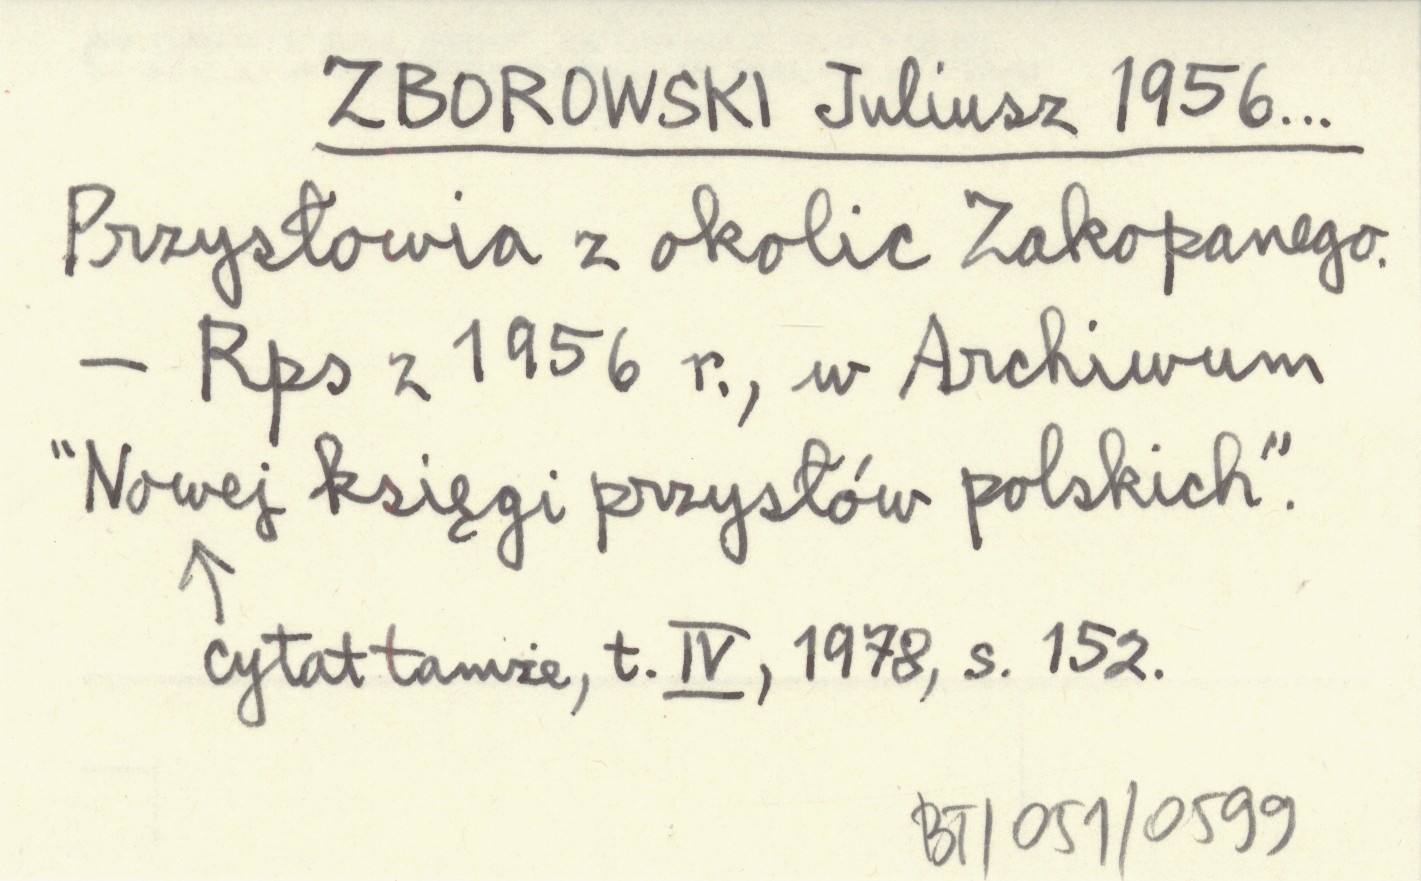 ZBOROWSKI Juliusz 1956...
Przysłowia z okolic Zakopanego.
— Rps z 1956 r., w Archiwum
"Nowej księgi przysłów polskich".
↑
cytat tamże, t. IV, 1978, s. 152.
BT/051/0599